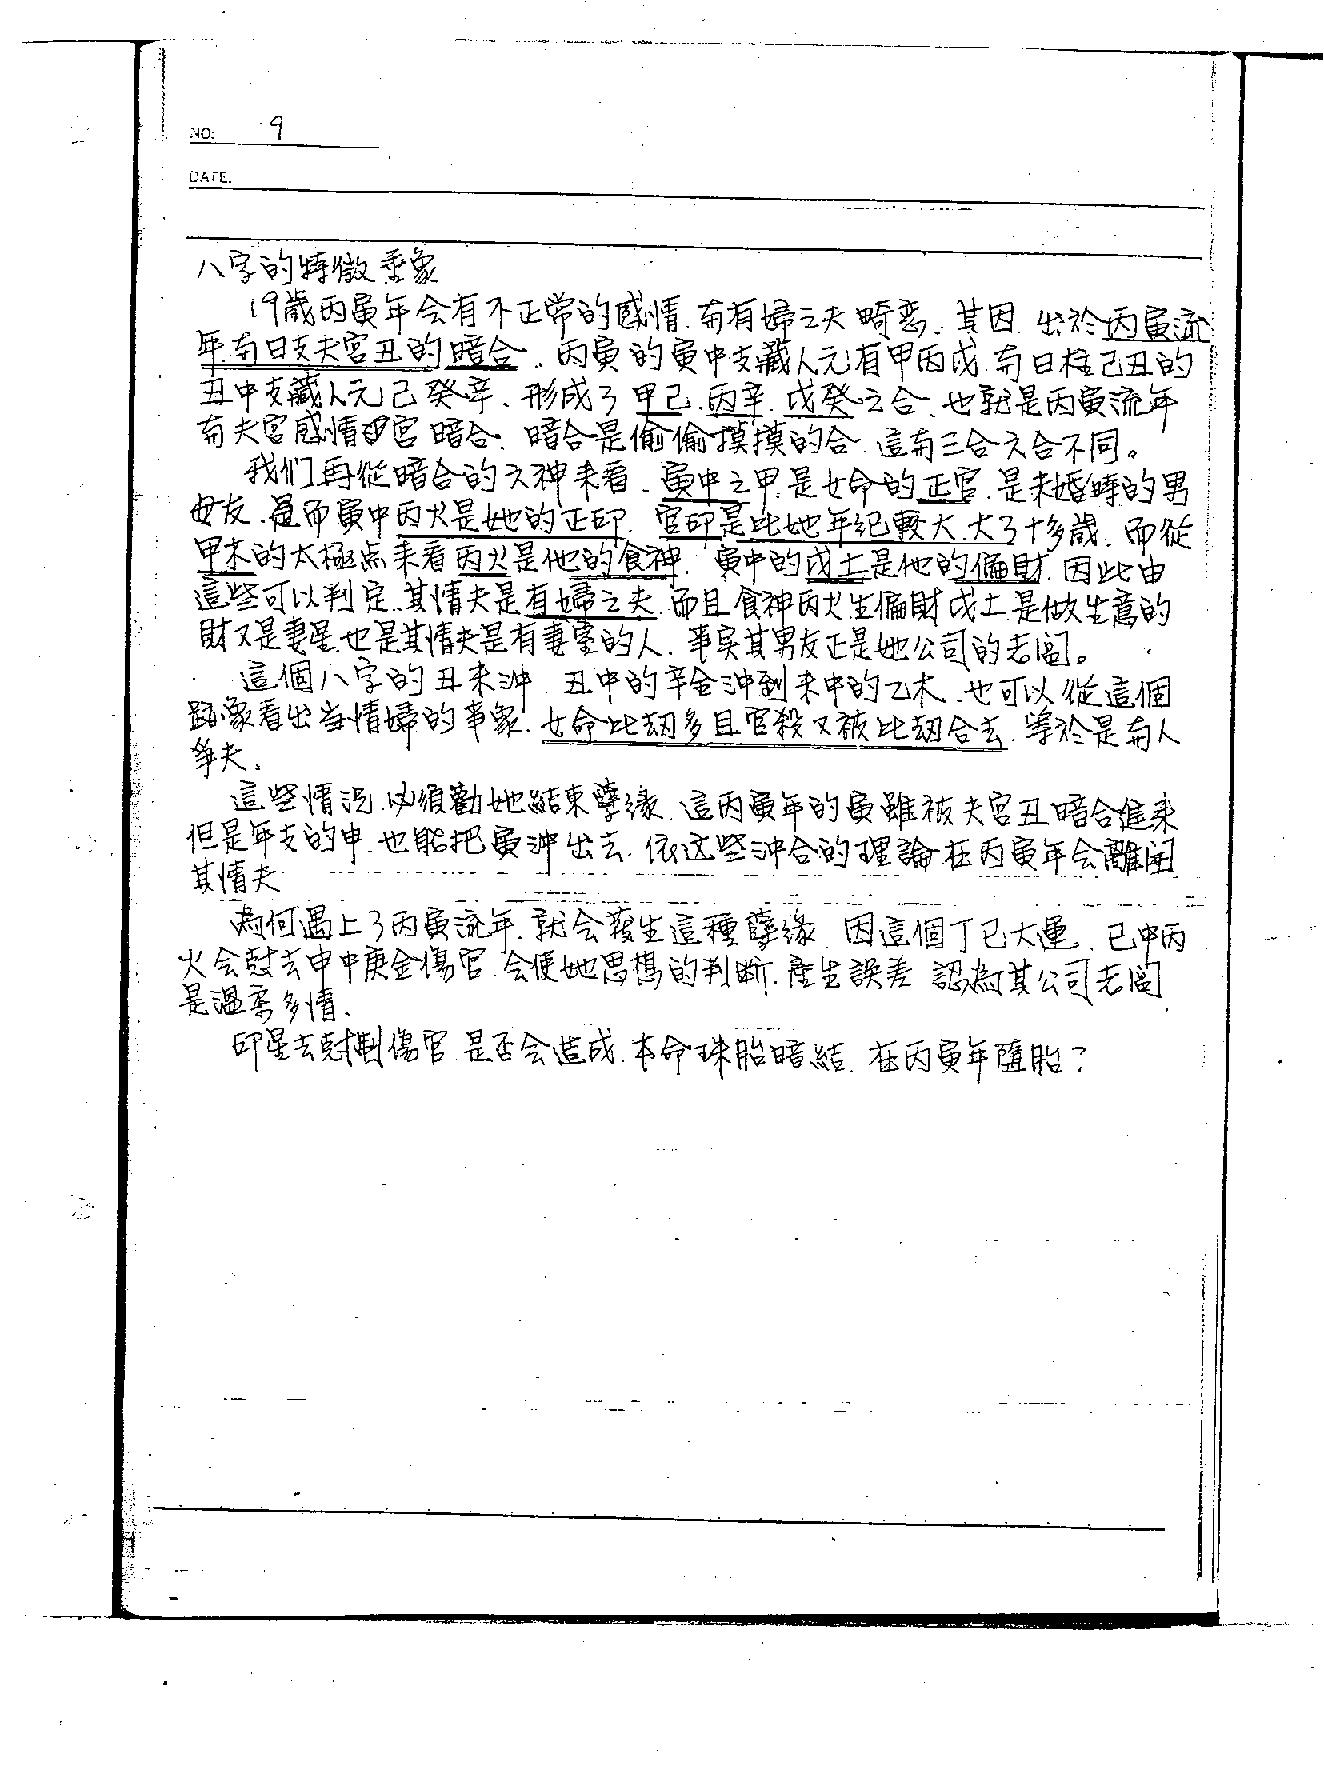 NO: 9
DATE.
八字的特徵垂象
19歲丙寅年会有不正常的感情.有有婦之夫畸恋.其因.出於丙寅流
年有日支夫宮丑的暗合.丙寅的寅中支藏人元有甲丙戊.有日柱己丑的
丑中支藏人元己癸辛.形成了甲己.丙辛.戊癸之合.也就是丙寅流年
有夫宮感情宮暗合.暗合是偷偷摸摸的合.這有三合六合不同。
我们再從暗合的六神来看.寅中之甲是女命的正官.是未婚時的男
女友.是而寅中丙火是她的正印.官印是比她年紀較大.大了十多歲.而從
甲木的太極点来看丙火是他的食神.寅中的戊土是他的偏財.因此由
這些可以判定.其情夫是有婦之夫.而且食神丙火生偏財戊土是做生意的
財又是妻星也是其情夫是有妻室的人.事实其男友正是她公司的老闆。
這個八字的丑未沖 丑中的辛金沖到未中的乙木.也可以從這個
跡象看出当情婦的事象.女命比劫多且官殺又被比劫合去.等於是有人
爭夫.
這些情況.必須勸她結束孽緣.這丙寅年的寅雖被夫宮丑暗合進来
但是年支的申.也能把寅沖出去.依这些沖合的理論在丙寅年会離開
其情夫
為何遇上了丙寅流年.就会發生這種孽緣 因這個丁巳大運.巳中丙
火会尅去申中庚金傷官.会使她思想的判断.産生誤差 認為其公司老闆
是溫柔多情.
印星去尅制傷官.是否会造成.本命珠胎暗結.在丙寅年墮胎？